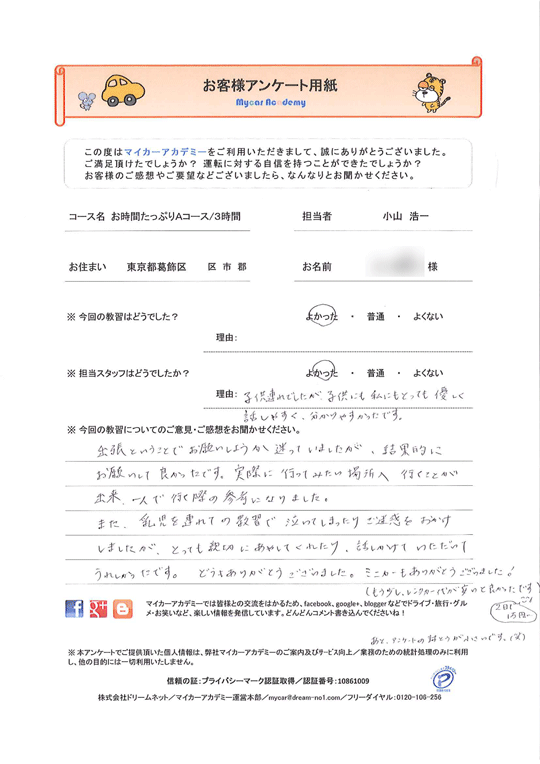 お客様アンケート用紙
Mycar Academy
この度はマイカーアカデミーをご利用いただきまして、誠にありがとうございました。
ご満足頂けたでしょうか？ 運転に対する自信を持つことができたでしょうか？
お客様のご感想やご要望などございましたら、なんなりとお聞かせください。
コース名 お時間たっぷりAコース/3時間 担当者 小山 浩一
お住まい 東京都葛飾区 区 市 郡 お名前 様
※ 今回の教習はどうでした？ よかった ・ 普通 ・ よくない
理由：
※ 担当スタッフはどうでしたか？ よかった ・ 普通 ・ よくない
理由： 子供連れでしたが、子供にも私にもとっても優しく
話しやすく、分かりやすかったです。
※ 今回の教習についてのご意見・ご感想をお聞かせください。
出張ということでお願いしようか迷っていましたが、結果的に
お願いして良かったです。実際に行ってみたい場所へ行くことが
出来、一人で行く際の参考になりました。
また、乳児を連れての教習で泣いてしまったりご迷惑をおかけ
しましたが、とっても親切にあやしてくれたり、話しかけていただいて
うれしかったです。 どうもありがとうございました。ミニカーもありがとうございました！
(もう少し、レンタカー代が安いと良かったです
2日で
1万円〜
マイカーアカデミーでは皆様との交流をはかるため、facebook、google+、bloggerなどでドライブ・旅行・グル
メ・お笑いなど、楽しい情報を発信しています。どんどんコメント書き込んでくださいね！
あと、アンケートの
※ 本アンケートでご提供頂いた個人情報は、弊社マイカーアカデミーのご案内及びサービス向上／業務のための統計処理のみに利用
し、他の目的には一切利用いたしません。
信頼の証：プライバシーマーク認証取得／認証番号：10861009
株式会社ドリームネット／マイカーアカデミー運営本部／mycar@dream-no1.com／フリーダイヤル：0120-106-256